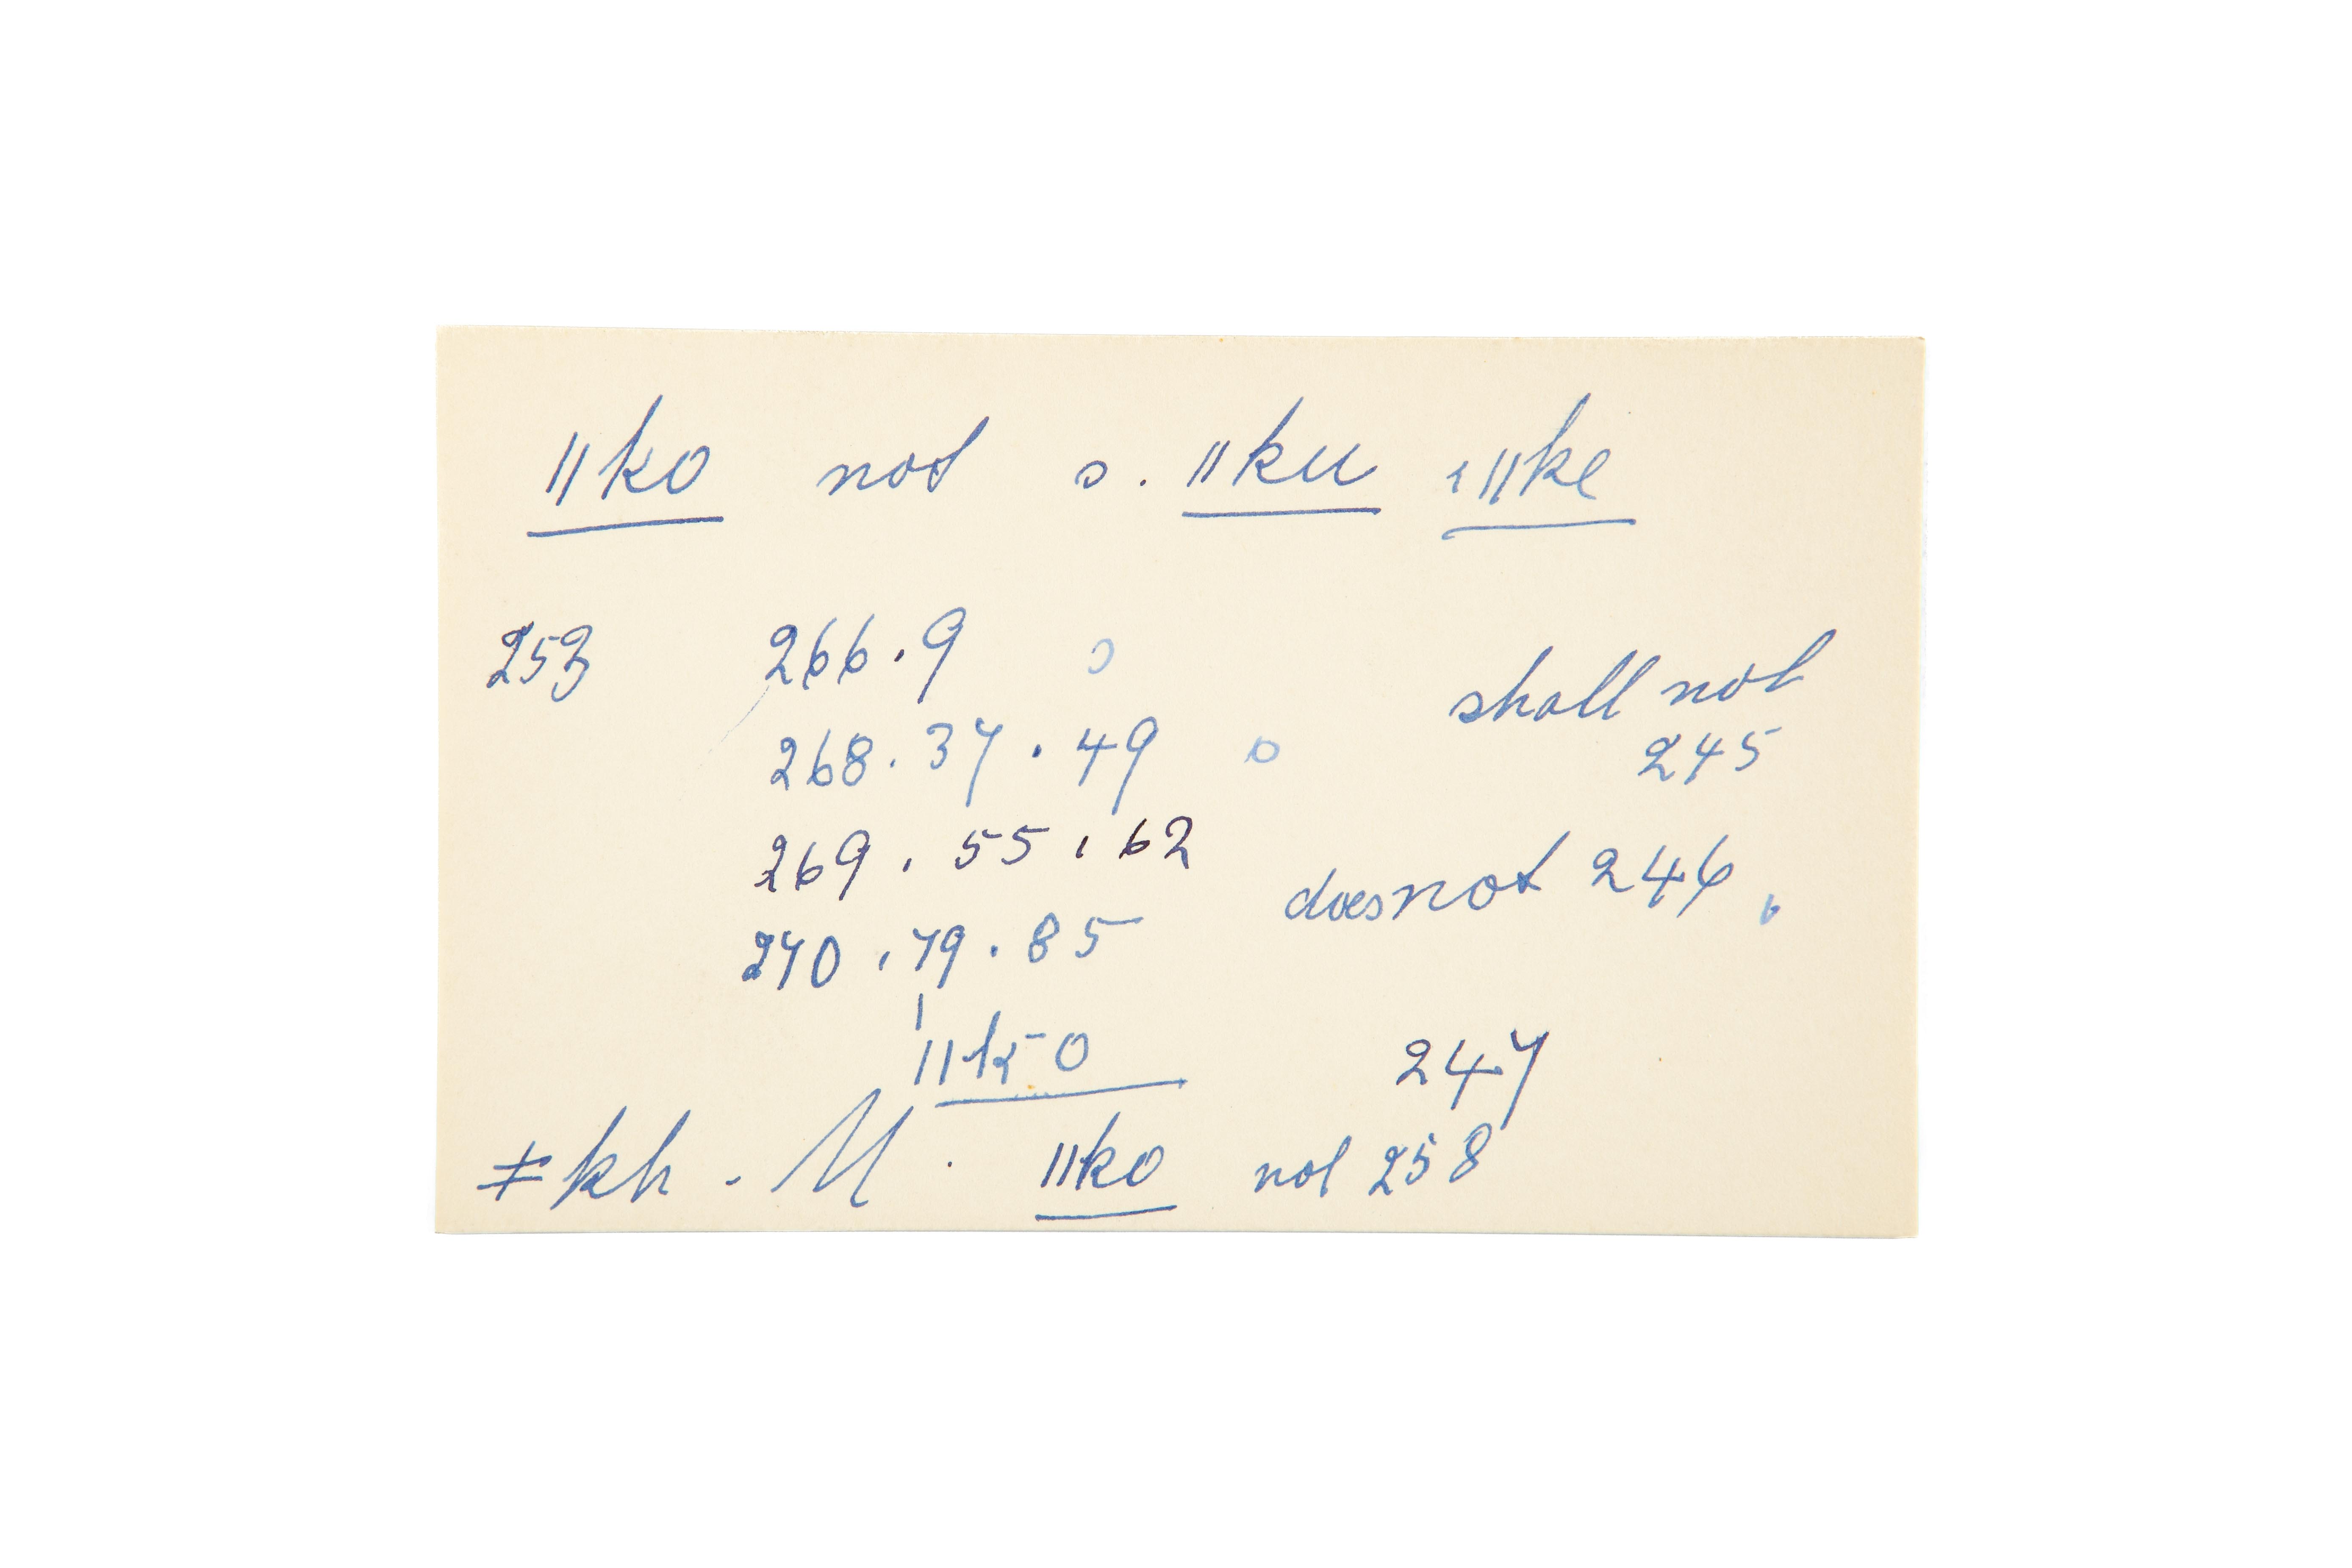 ǁko not s. ǁku ǁke
253 266.9 shall not
268.37.49 245
269.55.62
does not 246
270.79.85
ǁko 247
ǂkh. M. ǁko not 258